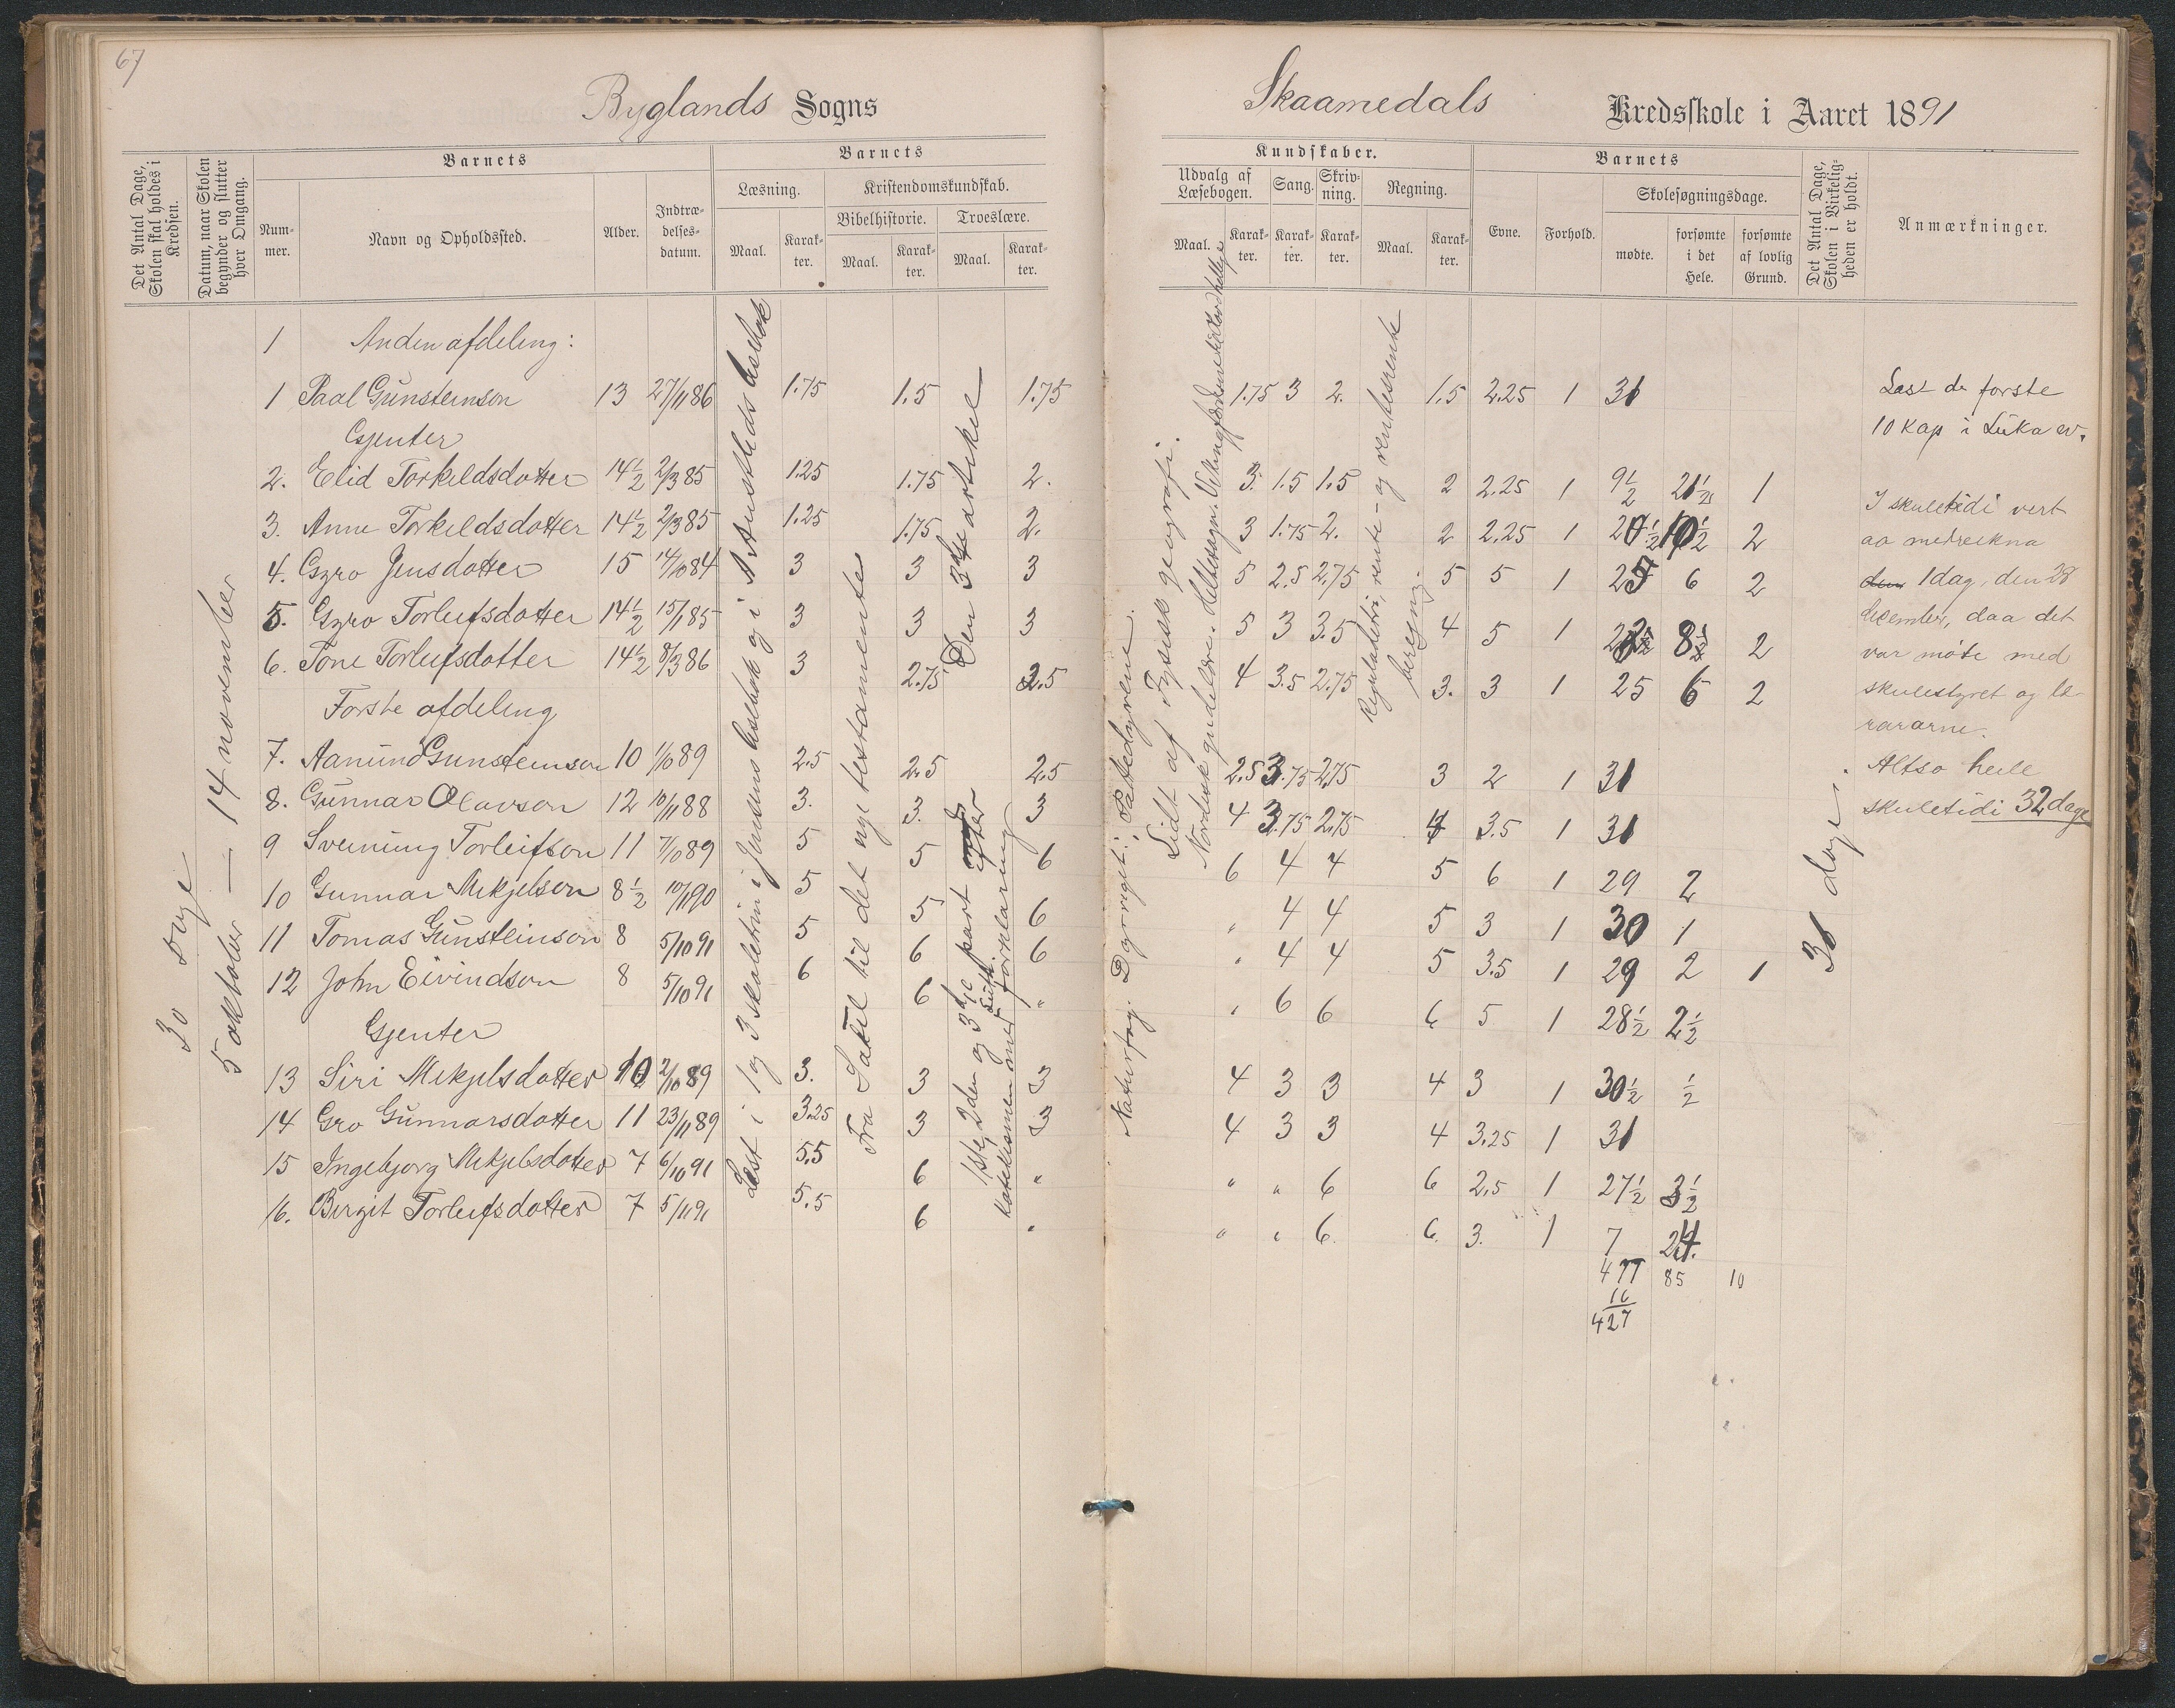 67
Byglands Sogns
Skaamedals Kredsskole i Aaret 1891
Det Antal Dage, Skolen skal holdes i Kredsen.
Datum, naar Skolen begynder og slutter hver Omgang.
Barnets
Nummer.
Navn og Opholdssted.
Alder.
Indtrædelsesdatum.
Barnets
Læsning.
Maal.
Karakter.
Kristendomskundskab.
Bibelhistorie.
Maal.
Karakter.
Troeslære.
Maal.
Karakter.
Kundskaber.
Udvalg af Læsebogen.
Maal.
Karakter.
Sang.
Karakter.
Skrivning.
Karakter.
Regning.
Maal.
Karakter.
Barnets
Evne.
Forhold.
Skolesøgningsdage.
mødte.
forsømte i det Hele.
forsømte af lovlig Grund.
Det Antal Dage, Skolen i Virkeligheden er holdt.
Anmærkninger.
30 dage
5 oktober — 14 november
1 Anden afdeling:
1 Paal Gunsteinson 13 27/11 86 1.75 1.5 1.75 1.75 3 2. 1.5 2.25 1 31
Gjenter
2. Elid Torkeldsdotter 14½ 2/3 85 1.25 1.75 2. 3. 1.5 1.5 2 2.25 1 9½ 21½ 1
3. Anne Torkeldsdotter 14½ 2/3 85 1.25 1.75 2. 3 1.75 2. 2 2.25 1 20½ 10½ 2
4. Gyro Jensdotter 15 14/10 84 3 3 3 5 2.5 2.75 5 5 1 25 6 2
5. Gyro Torleifsdotter 14½ 15/1 85 3 3 3 5 3 3.5 4 5 1 22½ 8½ 2
6. Tone Torleifsdotter 14½ 8/3 86 3 2.75 2.5 4 3.5 2.75 3. 3 1 25 6 2
Første afdeling
7. Aanund Gunsteinson 10 1/10 89 2.5 2.5 2.5 2.5 3.75 2.75 3 2 1 31
8. Gunnar Olavson 12 10/11 88 3. 3. 3 4 3.75 2.75 4 3.5 1 31
9 Sveinung Torleifson 11 7/10 89 5 5 6 6 4 4 5 6 1 29 2
10 Gunnar Mikjelson 8½ 10/11 90 5 5 6 " 4 4 5 3 1 30 1
11 Tomas Gunsteinson 8 5/10 91 5 6 6 " 4 4 5 3.5 1 29 2 1
12 John Eivindson 8 5/10 91 6 6 " " 6 6 6 5 1 28½ 2½
Gjenter
13 Siri Mikjelsdotter 10 2/10 89 3. 3 3 4 3 3 4 3 1 30½ ½
14 Gro Gunnarsdotter 11 23/11 89 3.25 3 3 4 3 3 4 3.25 1 31
15 Ingebjorg Mikjelsdotter 7 6/10 91 5.5 6 " " " 6 6 2.5 1 27½ 3½
16. Birgit Torleifsdotter 7 5/11 91 5.5 6 " " " 6. 6. 3. 1 7 24.
477 85 10
16
427
Læst i 1 og 3 skoletrin i Jensens læsebok og i A Austlids læsebok
Fra Saul til det nye testamente
Den 3dje artikel
1ste 2den og 3dje part efter Luth. katekismen med forklaring
Naturfag. Dyreriget: Pattedyrene.
Lidt af Fysisk geografi.
Nordisk gudelære. Heltesagn.
rente- og rentesrente beregning.
31 dage.
Læst de første
10 kap i Luka ev.
I skuletidi vert
aa medrekna
1 dag, den 28
desember, daa det
var møte med
skulestyret og lærararne.
Altso heile
skuletidi 32 dage